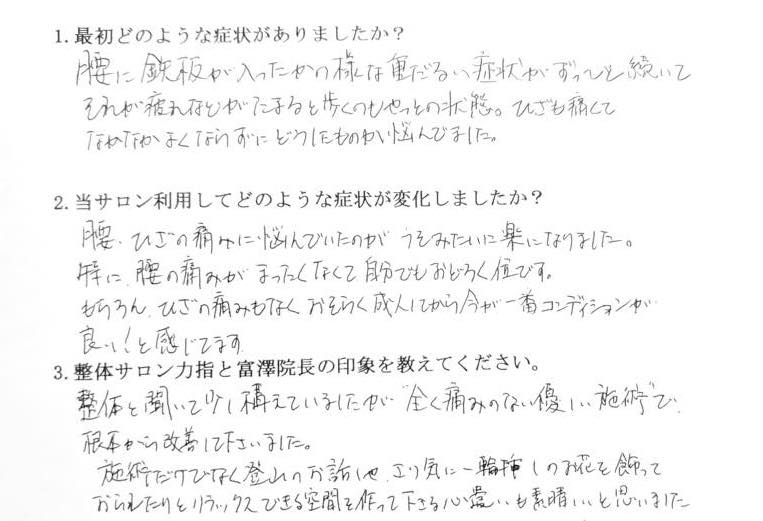 1. 最初どのような症状がありましたか？
腰に鉄板が入ったかの様な重だるい症状がずっと続いて
それが疲れなどがたまると歩くのもやっとの状態。ひざも痛くて
なかなかよくならずにどうしたものかい悩んでました。
2. 当サロン利用してどのような症状が変化しましたか？
腰、ひざの痛みに悩んでいたのがうそみたいに楽になりました。
特に、腰の痛みがまったくなくて自分でもおどろく位です。
もちろん、ひざの痛みもなくおそらく成人してから今が一番コンディションが
良い！と感じてます
3. 整体サロン力指と富澤院長の印象を教えてください。
整体と聞いて少し構えていましたが"全く痛みのない優しい施術"で
根本から改善して下さいました。
施術だけでなく登山のお話しや、さり気に一輪挿しのお花を飾って
おられたりとリラックスできる空間を作って下さる心遣いも素晴しいと思いました